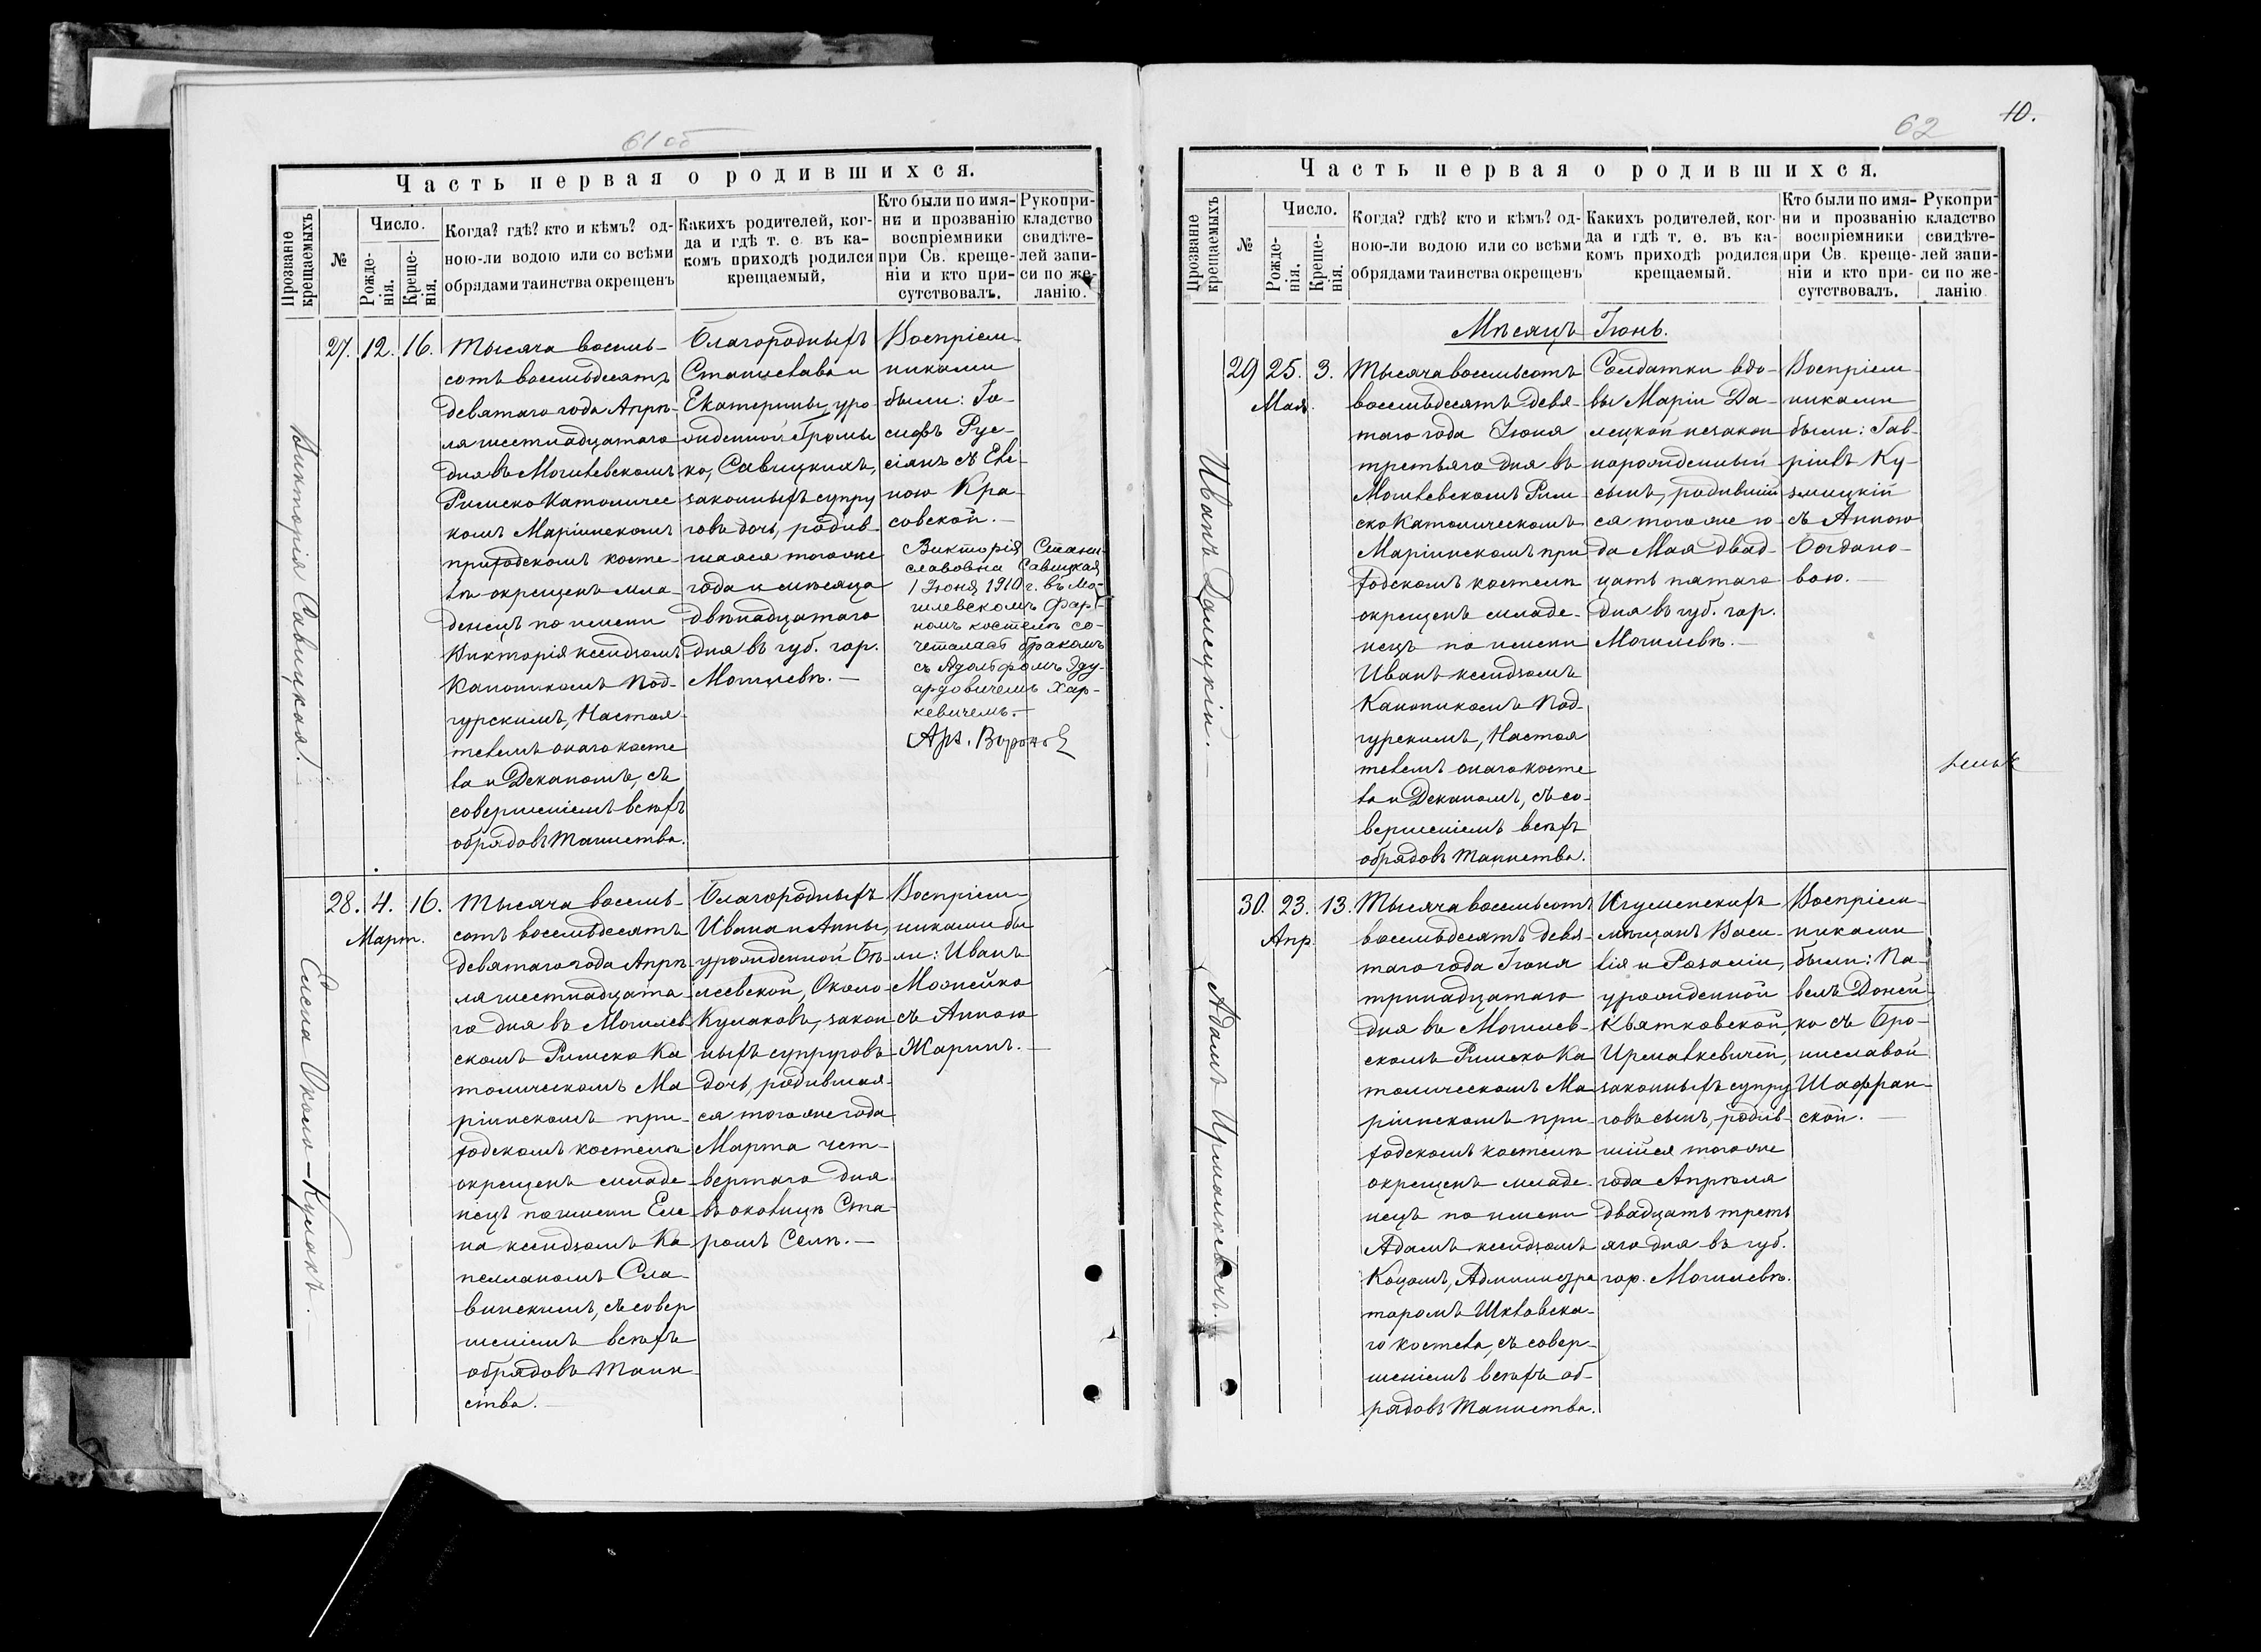 61 об
Часть первая о родившихся.
Прозваніе крещаемыхъ
№
Число.
Рожде-
нія.
Креще-
нія.
Когда? гдѣ? кто и кѣмъ? од-
ною-ли водою или со всѣми
обрядами таинства окрещенъ
Какихъ родителей, ког-
да и гдѣ т. е. въ ка-
комъ приходѣ родился
крещаемый,
Кто были по имя-
ни и прозванію
воспріемники
при Св. креще-
ніи и кто при-
сутствовалъ.
Рукопри-
кладство
свидѣте-
лей запи-
си по же-
ланію.
Викторія Савицкая.
27. 12. 16.
Тысяча восемь-
сотъ восемьдесятъ
девятаго года Апрѣ-
ля шестнадцатаго
дня въ Могилевскомъ
Римско Католичес
комъ Маріинскомъ
приходскомъ косте-
лѣ окрещенъ мла-
денецъ по имени
Викторія ксендзомъ
Каноникомъ Под-
гурскимъ, Настоя-
телемъ онаго косте
ла и Деканомъ, съ
совершеніемъ всѣхъ
обрядовъ Таинства.
Благородныхъ
Станислава и
Екатерины, уро
жденной Громы
ко, Савицкихъ,
законныхъ супру
говъ дочь, родив-
шаяся тогоже
года и мѣсяца
двѣнадцатаго
дня въ губ. гор.
Могилевѣ.—
Воспріем-
никами
были: Іо-
сифъ Рус-
сіянъ съ Еле
ною Кра-
совской.—
Викторія Стани-
славовна Савицкая
1 Іюня 1910 г. въ Мо-
гилевскомъ Фар-
номъ костелѣ со-
четалась бракомъ
съ Адольфомъ Эду-
ардовичемъ Хар-
кевичемъ.—
Елена Около-Кулакъ.
28. 4. 16.
Март.
Тысяча восемь-
сотъ восемьдесятъ
девятаго года Апрѣ-
ля шестнадцата-
го дня въ Могилев
скомъ Римско Ка
толическомъ Ма-
ріинскомъ при-
ходскомъ костелѣ
окрещенъ младе-
нецъ по имени Еле-
на ксендзомъ Ка
пелланомъ Сла-
винскимъ, съ совер
шеніемъ всѣхъ
обрядовъ Таин-
ства.
Благородныхъ
Ивана и Анны,
урожденной Бѣ-
лесвской, Около-
Кулаковъ, закон
ныхъ супруговъ
дочь, родившая-
ся тогоже года
Марта чет-
вертаго дня
въ околицѣ Ста-
ромъ Селѣ.—
Воспріем-
никами бы
ли: Иванъ
Можейко
съ Анною
Жаринъ.—
62
10.
Часть первая о родившихся.
Прозваніе крещаемыхъ
№
Число.
Рожде-
нія.
Креще-
нія.
Когда? гдѣ? кто и кѣмъ? од-
ною-ли водою или со всѣми
обрядами таинства окрещенъ
Какихъ родителей, ког-
да и гдѣ т. е. въ ка-
комъ приходѣ родился
крещаемый.
Кто были по имя-
ни и прозванію
воспріемники
при Св. креще-
ніи и кто при-
сутствовалъ.
Рукопри-
кладство
свидѣте-
лей запи-
си по же-
ланію
Мѣсяцъ Іюнь.
Иванъ Далецкій.
29 25. 3.
Мая.
Тысяча восемьсотъ
восемьдесятъ девя-
таго года Іюня
третьяго дня въ
Могилевскомъ Рим
ско Католическомъ
Маріинскомъ при
ходскомъ костелѣ
окрещенъ младе-
нецъ по имени
Иванъ ксендзомъ
Каноникомъ Под-
гурскимъ, Настоя
телемъ онаго косте
ла и Деканомъ, съ со-
вершеніемъ всѣхъ
обрядовъ Таинства.
Солдатки вдо-
вы Маріи Да-
лецкой незакон
норожденный
сынъ, родившій
ся тогоже го-
да Мая двад-
цать пятаго
дня въ губ. гор.
Могилевѣ.—
Воспріем-
никами
были: Гав-
ріилъ Ку-
змицкій
съ Анною
Богдано-
вою.—
Адамъ Ирмалкевичъ.
30. 23. 13.
Апр.
Тысяча восемьсотъ
восемьдесятъ девя-
таго года Іюня
тринадцатаго
дня въ Могилев-
скомъ Римско Ка
толическомъ Ма
ріинскомъ при-
ходскомъ костелѣ
окрещенъ младе-
нецъ по имени
Адамъ ксендзомъ
Коцомъ, Администра
торомъ Шкловска-
го костела, съ совер-
шеніемъ всѣхъ об-
рядовъ Таинства.
Игуменскихъ
мѣщанъ Васи-
лія и Розаліи,
урожденной
Квятковской,
Ирмалкевичей,
законныхъ супру
говъ сынъ, родив-
шійся тогоже
года Апрѣля
двадцать треть
яго дня въ губ.
гор. Могилевѣ.
Воспріем-
никами
были: Па-
велъ Доней-
ко съ Бро-
ниславой
Шафран-
ской.—